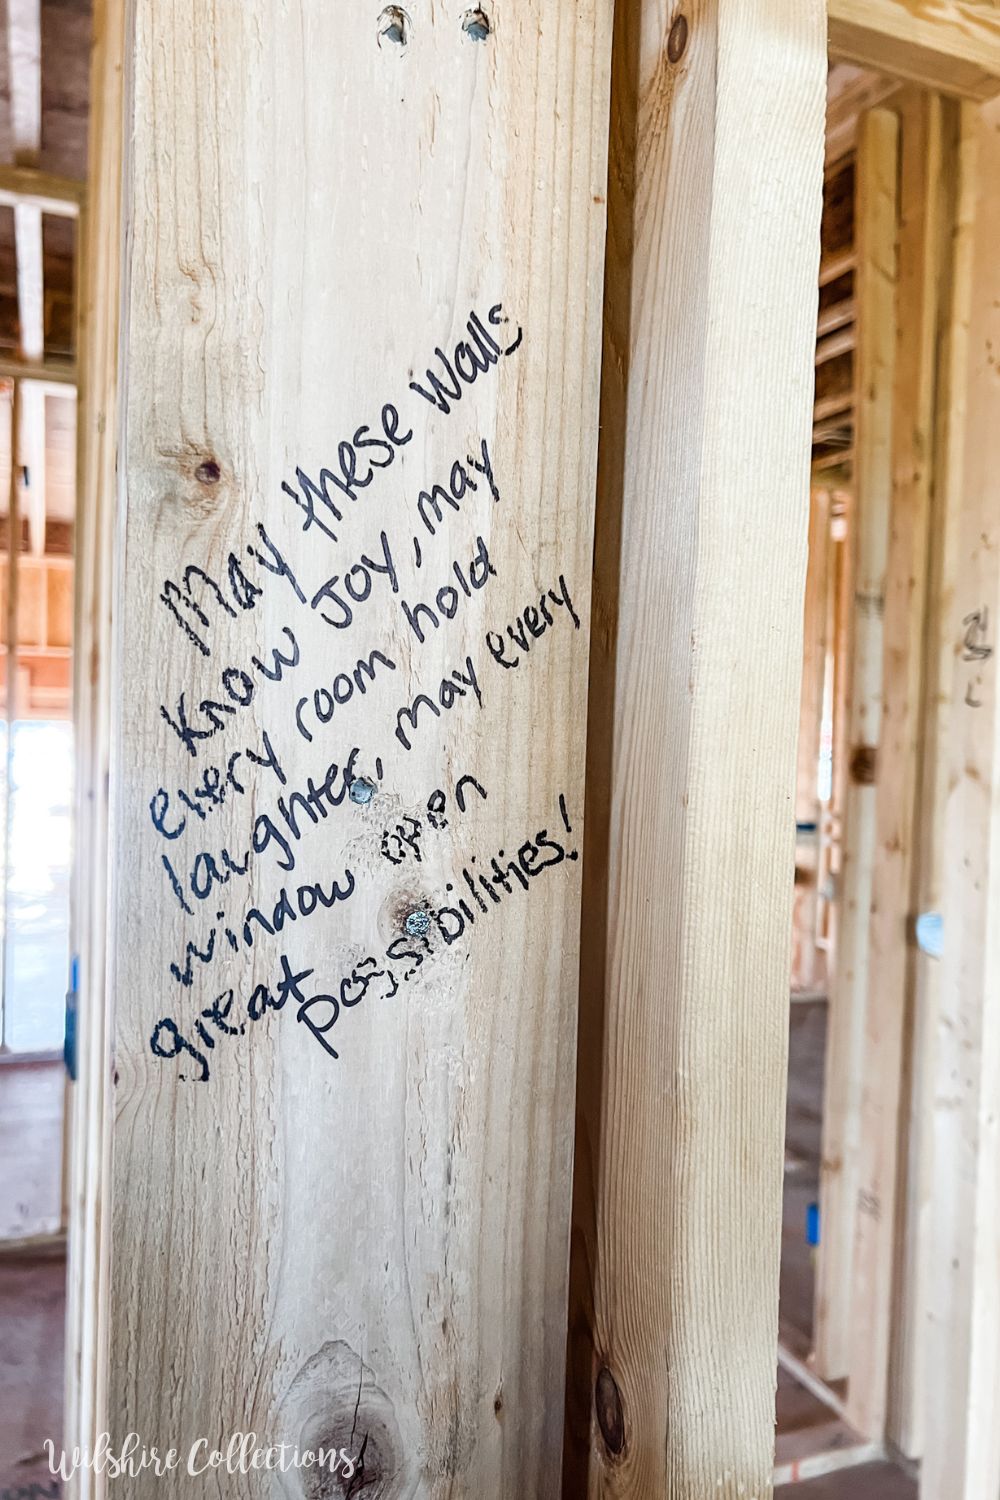 May these Walls
Know Joy, may
every room hold
laughter, may every
window open
great possibilities!
Wilshire Collections